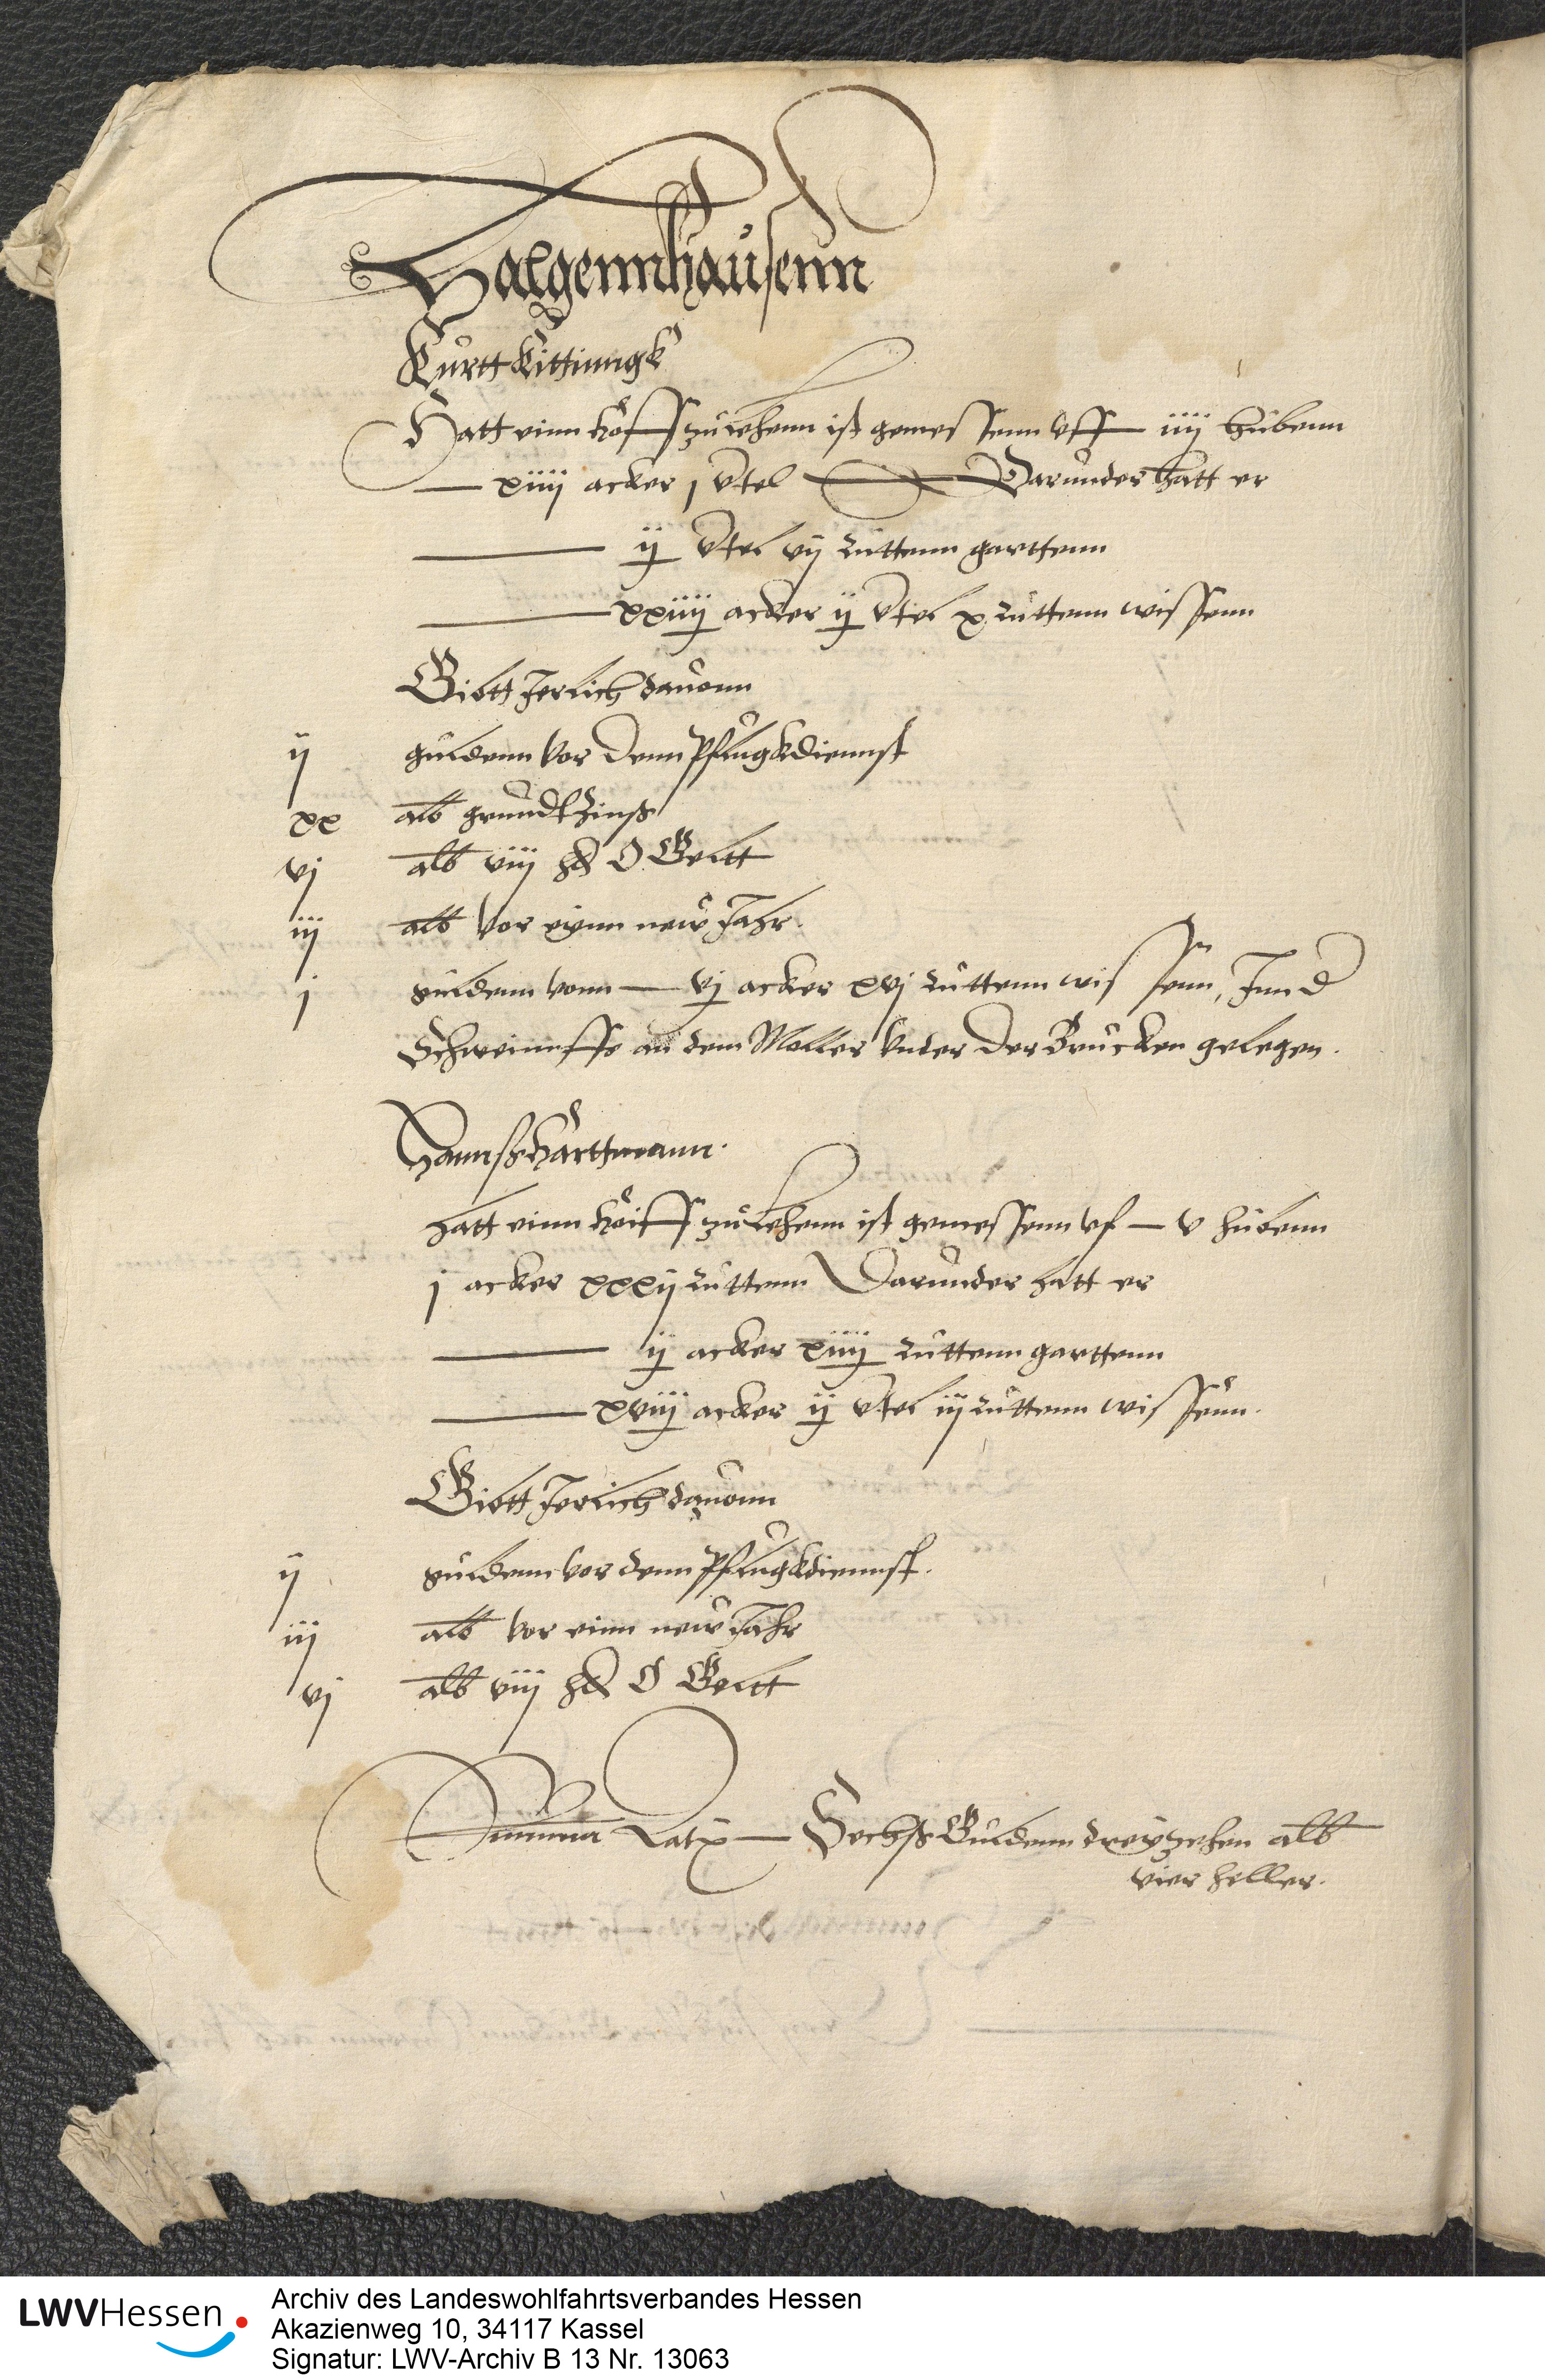 Falgennhausenn
Curtt Kittinngk
Hatt einn hoff zu lehenn ist gemessenn vff — iiij hubenn
— xiiij acker j virtel — Darunder hatt er
— ij virtel vij ruttenn garttenn
— xxiiij acker ij virtel x ruttenn wissenn
Gibtt Jerlich dauonn
ij guldenn vor denn Pflugkdiennst
xx alb grundtzinß
vj alb viij hlr O Geltt
iij alb vor eynn new Jahr.
j guldenn vonn — vj acker xvj ruttenn wissenn, Inn d
Schweinnsse an dem Moller vnder der Brucken gelegen.
Hannß Harttmann.
hatt einn hoiff zu lehenn ist gemessenn vf — v hubenn
j acker xxxij ruttenn Darunder hatt er
— ij acker xiiij ruttenn garttenn
— xviij acker ij virtel iij ruttenn wissenn.
Gibtt Jerlich dauonn
ij guldenn vor denn Pflugkdiennst.
iij alb vor einn new Jahr
vj alb viij hlr O Geltt
Summa Latris — Sechß Guldenn dreyzehen alb
vier heller.
LWVHessen
Archiv des Landeswohlfahrtsverbandes Hessen
Akazienweg 10, 34117 Kassel
Signatur: LWV-Archiv B 13 Nr. 13063